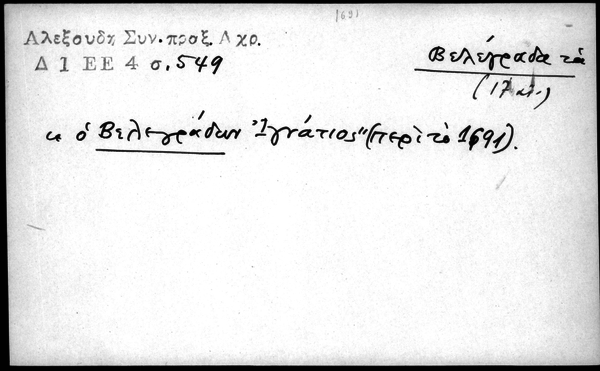 1691
Αλεξουδη Συν.πραξ. Αχρ.
Δ 1 ΕΕ 4 σ. 549
Βελέγραδα τὰ
(17 αἰ.)
"ὁ Βελεγράδων Ἰγνάτιος" (περὶ τὸ 1691).